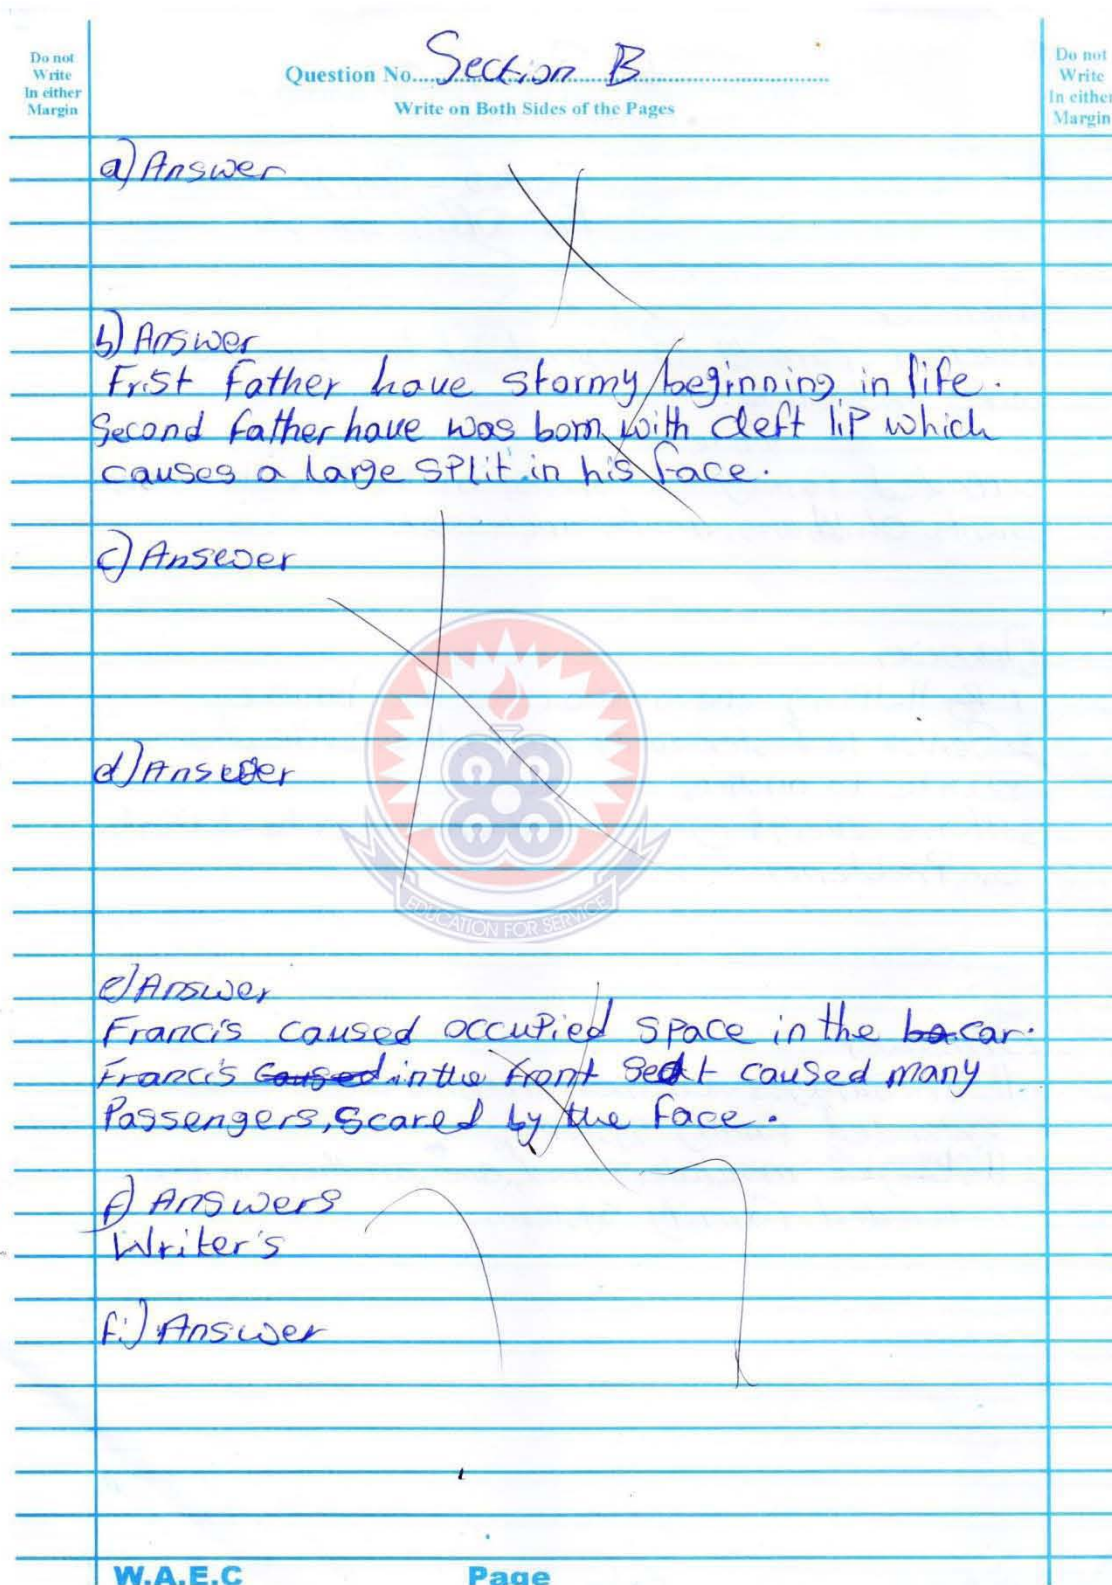 Do not
Write
In either
Margin
Question No. Section B
Write on Both Sides of the Pages
Do not
Write
In either
Margin
a) Answer
b) Answer
Frist father have stormy beginning in life.
Second father have was born with cleft lip which
causes a large split in his face.
c) Answer
d) Answer
EDUCATION FOR SERVICE
e) Answer
Francis caused occupied space in the ba car.
Francis caused in the front seat caused many
Passengers, scared by the face.
f) Answers
Writer's
f:) Answer
W.A.E.C Page